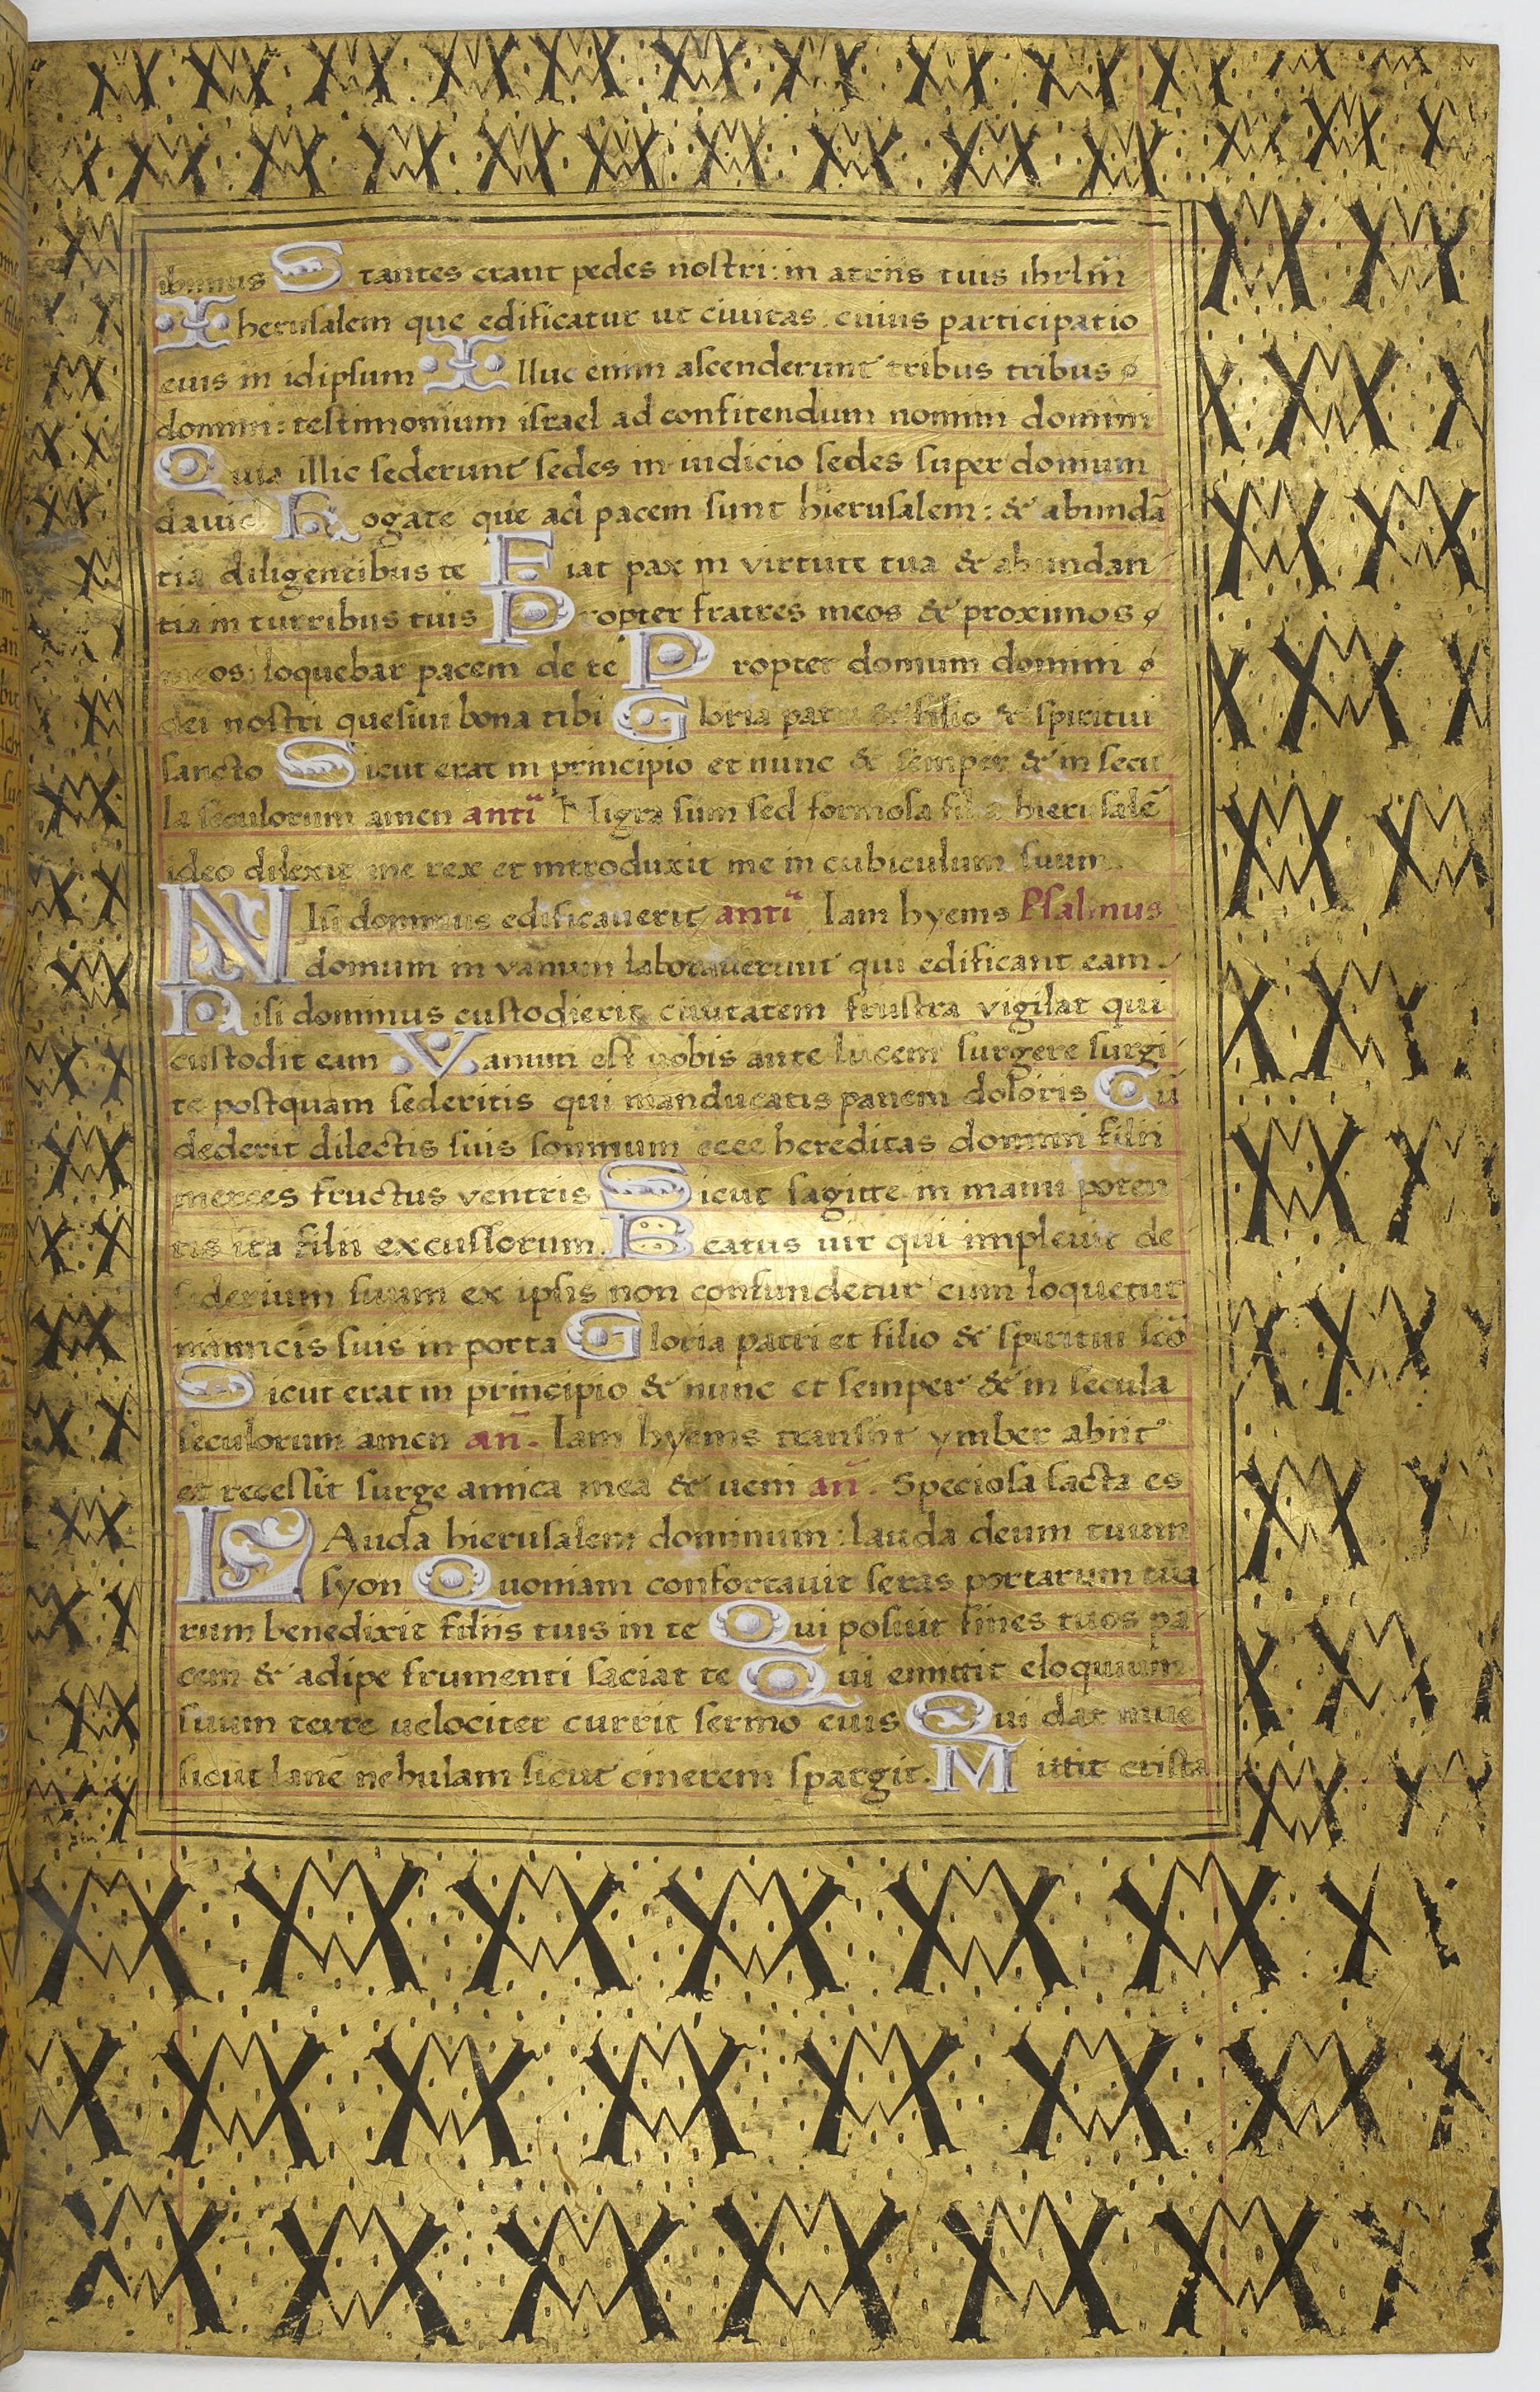 ibimus Stantes erant pedes nostri: in atriis tuis ihrlm̄
Iherusalem que edificatur ut ciuitas cuius participatio
eius in idipsum Illuc enim ascenderunt tribus tribus
domini: testimonium israel ad confitendum nomini domini
Quia illic sederunt sedes in iudicio sedes super domum
dauid Rogate que ad pacem sunt hierusalem: & abundā
tia diligentibus te Fiat pax in virtute tua & abundan
tia in turribus tuis Propter fratres meos & proximos
meos loquebar pacem de te Propter domum domini
dei nostri quesiui bona tibi Gloria patri & filio & spiritui
sancto Sicut erat in principio et nunc & semper & in secu
la seculorum amen antiᵃ Nigra sum sed formosa filia hierusalē
ideo dilexit me rex et introduxit me in cubiculum suum.
NIsi dominus edificauerit antiᵃ Iam hyems Psalmus
domum in vanum laborauerunt qui edificant eam.
Nisi dominus custodierit ciuitatem frustra vigilat qui
custodit eam Vanum est uobis ante lucem surgere surgi
te postquam sederitis qui manducatis panem doloris Cū
dederit dilectis suis somnum ecce hereditas domini filii
merces fructus ventris Sicut sagitte in manu poten
tis ita filii excussorum. Beatus uir qui impleuit de
siderium suum ex ipsis non confundetur cum loquetur
inimicis suis in porta Gloria patri et filio & spiritui scō
Sicut erat in principio & nunc et semper & in secula
seculorum amen an̄. Iam hyems transiit ymber abiit
et recessit surge amica mea & ueni an̄. Speciosa facta es
LAuda hierusalem dominum: lauda deum tuum
syon Quoniam confortauit seras portarum tua
rum benedixit filiis tuis in te Qui posuit fines tuos pa
cem & adipe frumenti saciat te Qui emittit eloquium
suum terre uelociter currit sermo eius Qui dat niue
sicut lanē nebulam sicut cinerem spargit. Mittit crista